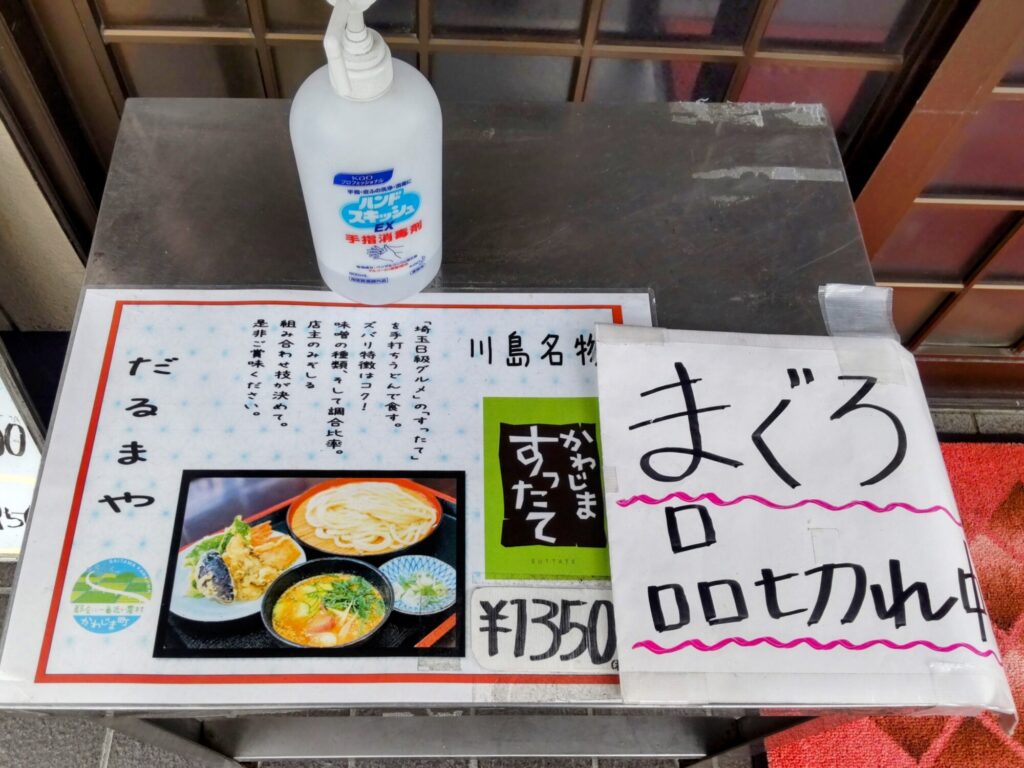 Kao
プロフェッショナル
ハンド
スキッシュ
EX
手指消毒剤
川島名物
「埼玉B級グルメ」の「すったて」
を手打ちうどんで食す。
ズバリ特徴はコク!
味噌の種類、そして調合比率。
店主のみぞしる
組み合わせ技が決めて。
是非ご賞味ください。
だるまや
かわじま
すったて
SUTTATE
¥1350
まぐろ
品切れ中